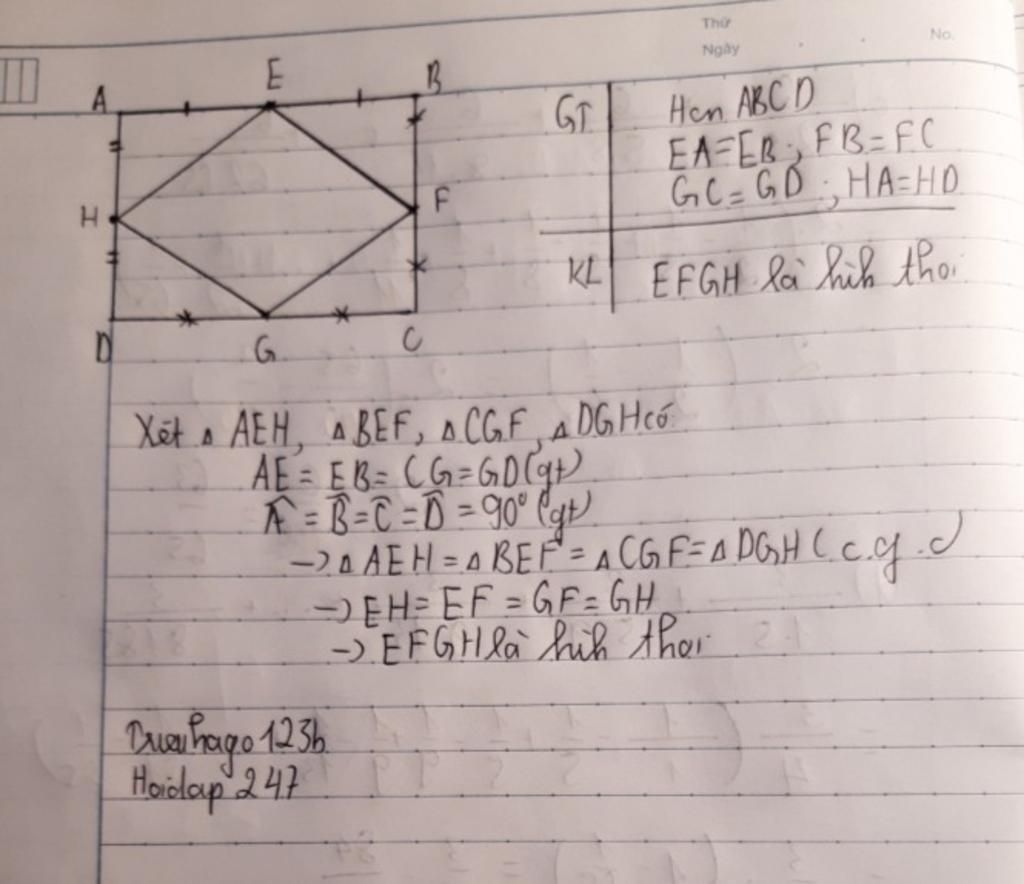 Thứ
Ngày
No.
A E B
H F
D G C
GT Hcn ABCD
EA=EB; FB=FC
GC=GD; HA=HD
KL EFGH là hìh thoi
Xét ▵ AEH, ▵ BEF, ▵ CGF, ▵ DGH có
AE = EB = CG = GD (gt)
Â = B̂ = Ĉ = D̂ = 90° (gt)
→ ▵ AEH = ▵ BEF = ▵ CGF = ▵ DGH (c.g.c)
→ EH = EF = GF = GH
→ EFGH là hìh thoi
Hoidap 247